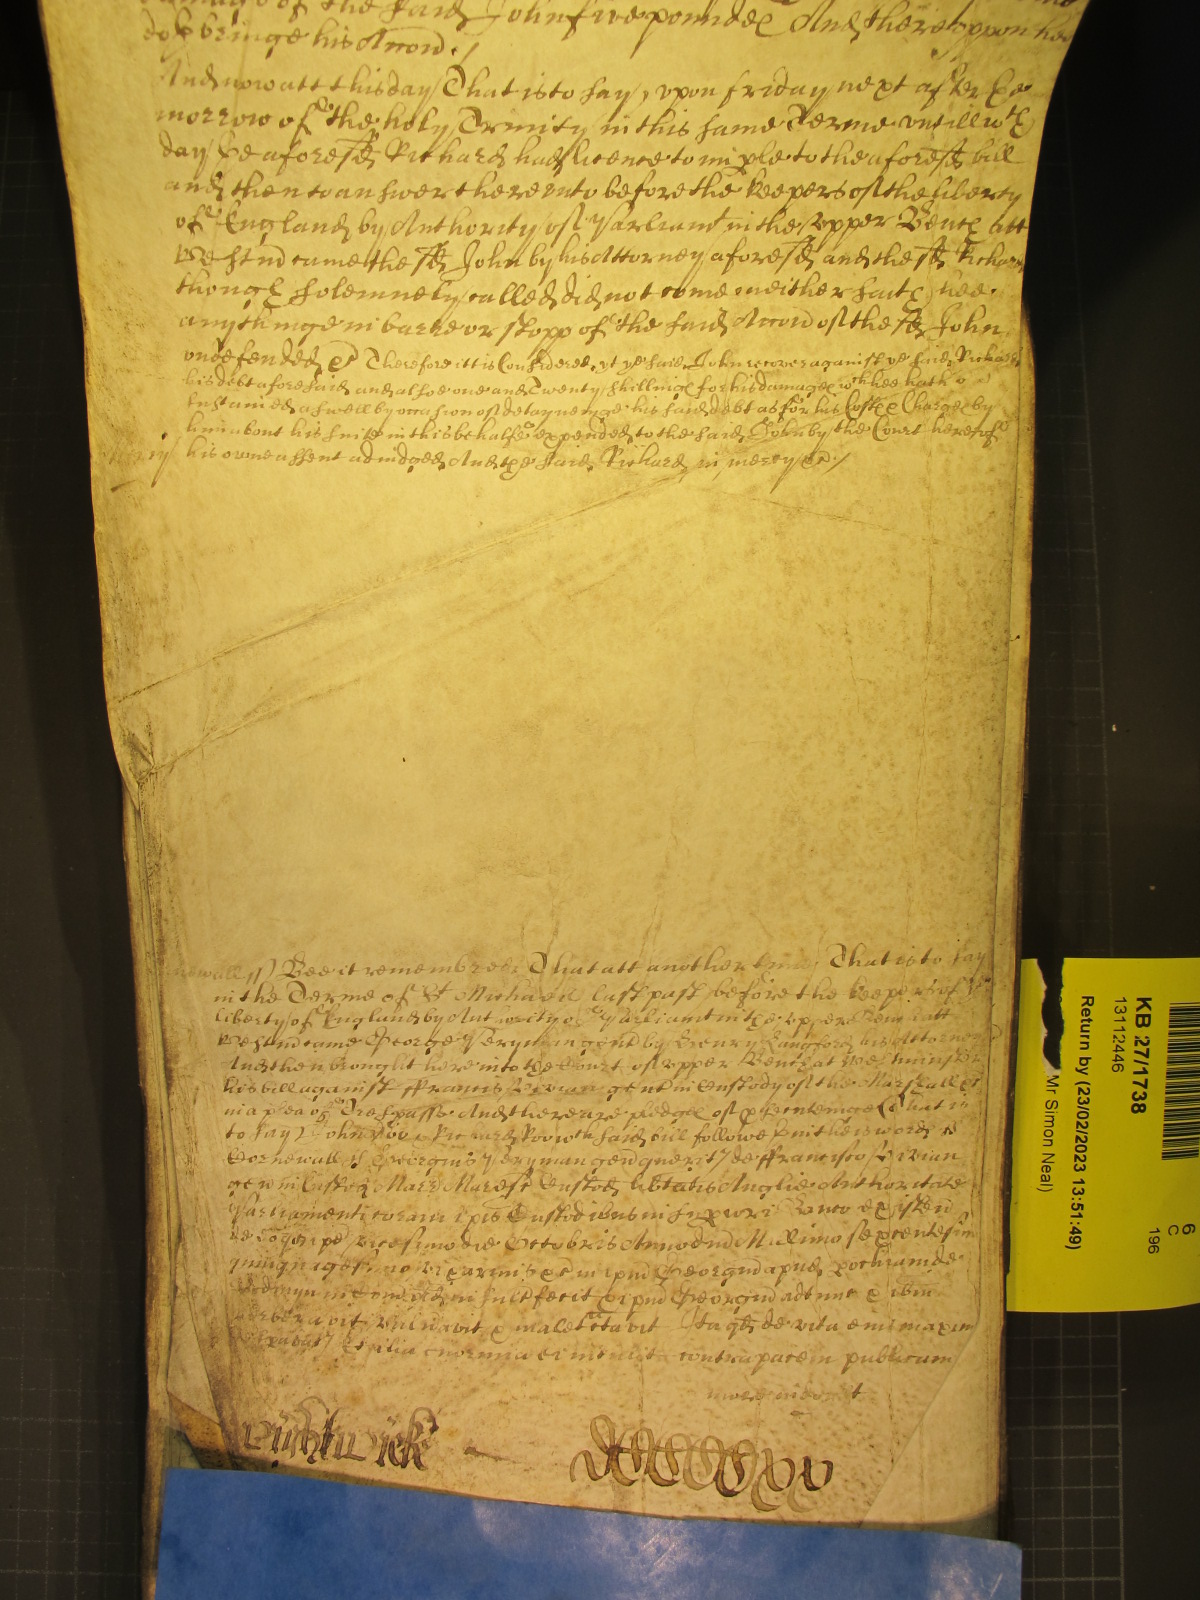 of the said John five poundes And thereuppon hee
bringe his Accion ./
And now att this day That is to say, upon friday next after the
morrow of the holy Trinity in this same Terme untill wch
day the aforesd Richard had licence to imple to the aforesd bill
and then to answer thereunto before the keepers of the liberty
of England by Authority of Parliamt in the upper Bench att
Westmr came the sd John by his Attorney aforesd and the sd Richard
though solemnely called did not come neither saith hee
any thinge in barre or stopp of the said Accion of the sd John
undefended &c Therefore it is Considered, yt ye said John recover against ye said Richard
his debt aforesaid and alsoe one and Twenty shillings for his damages wch hee hath
sustained aswell by occasion of detayneinge his said debt as for his Costs & Charges by
him about his suite in this behalfe expended to the said John by the Court here of
mercy his owne assent adiudged And the said Richard in mercy &c ./
Bee it remembred That att another time That is to say
in the Terme of St Michaell last past before the keepers of
liberty of England by Authority of Parliamt in the upper Bench att
Westmr came George Peryman gent by Henry Langford his Attorney
And then brought here into the Court of upper Bench at Westminster
his bill against ffrancis Vivian gent in Custody of the Marshall &c
in a plea of Trespasse And there are pledges of p'secuteinge That is
to say John Doo & Richard Roo wch said bill followeth in theis words ss
Cornewall ss Georgius Peryman gen querit de ffrancisco Vivian
gen in Custod Marr Maresc Custod libtatis Anglie Authoritate
Parliamenti coram ipis Custodibus in Superiori Banco existen
vicesimo die Octobris Anno dni Millimo sexcentesimo
quinquagesimo vi et armis &c in ipm Georgiu apud
in Com pred insult fecit & ipm Georgiu adtunc & ibm
verberavit vulnavit & maletractavit Ita qd de vita eius maxime
Et alia enormia ei intulit contra pacem publicam
KB 27/1738
13112446
Return by (23/02/2023 13:51:49)
Mr Simon Neal)
6
C
196